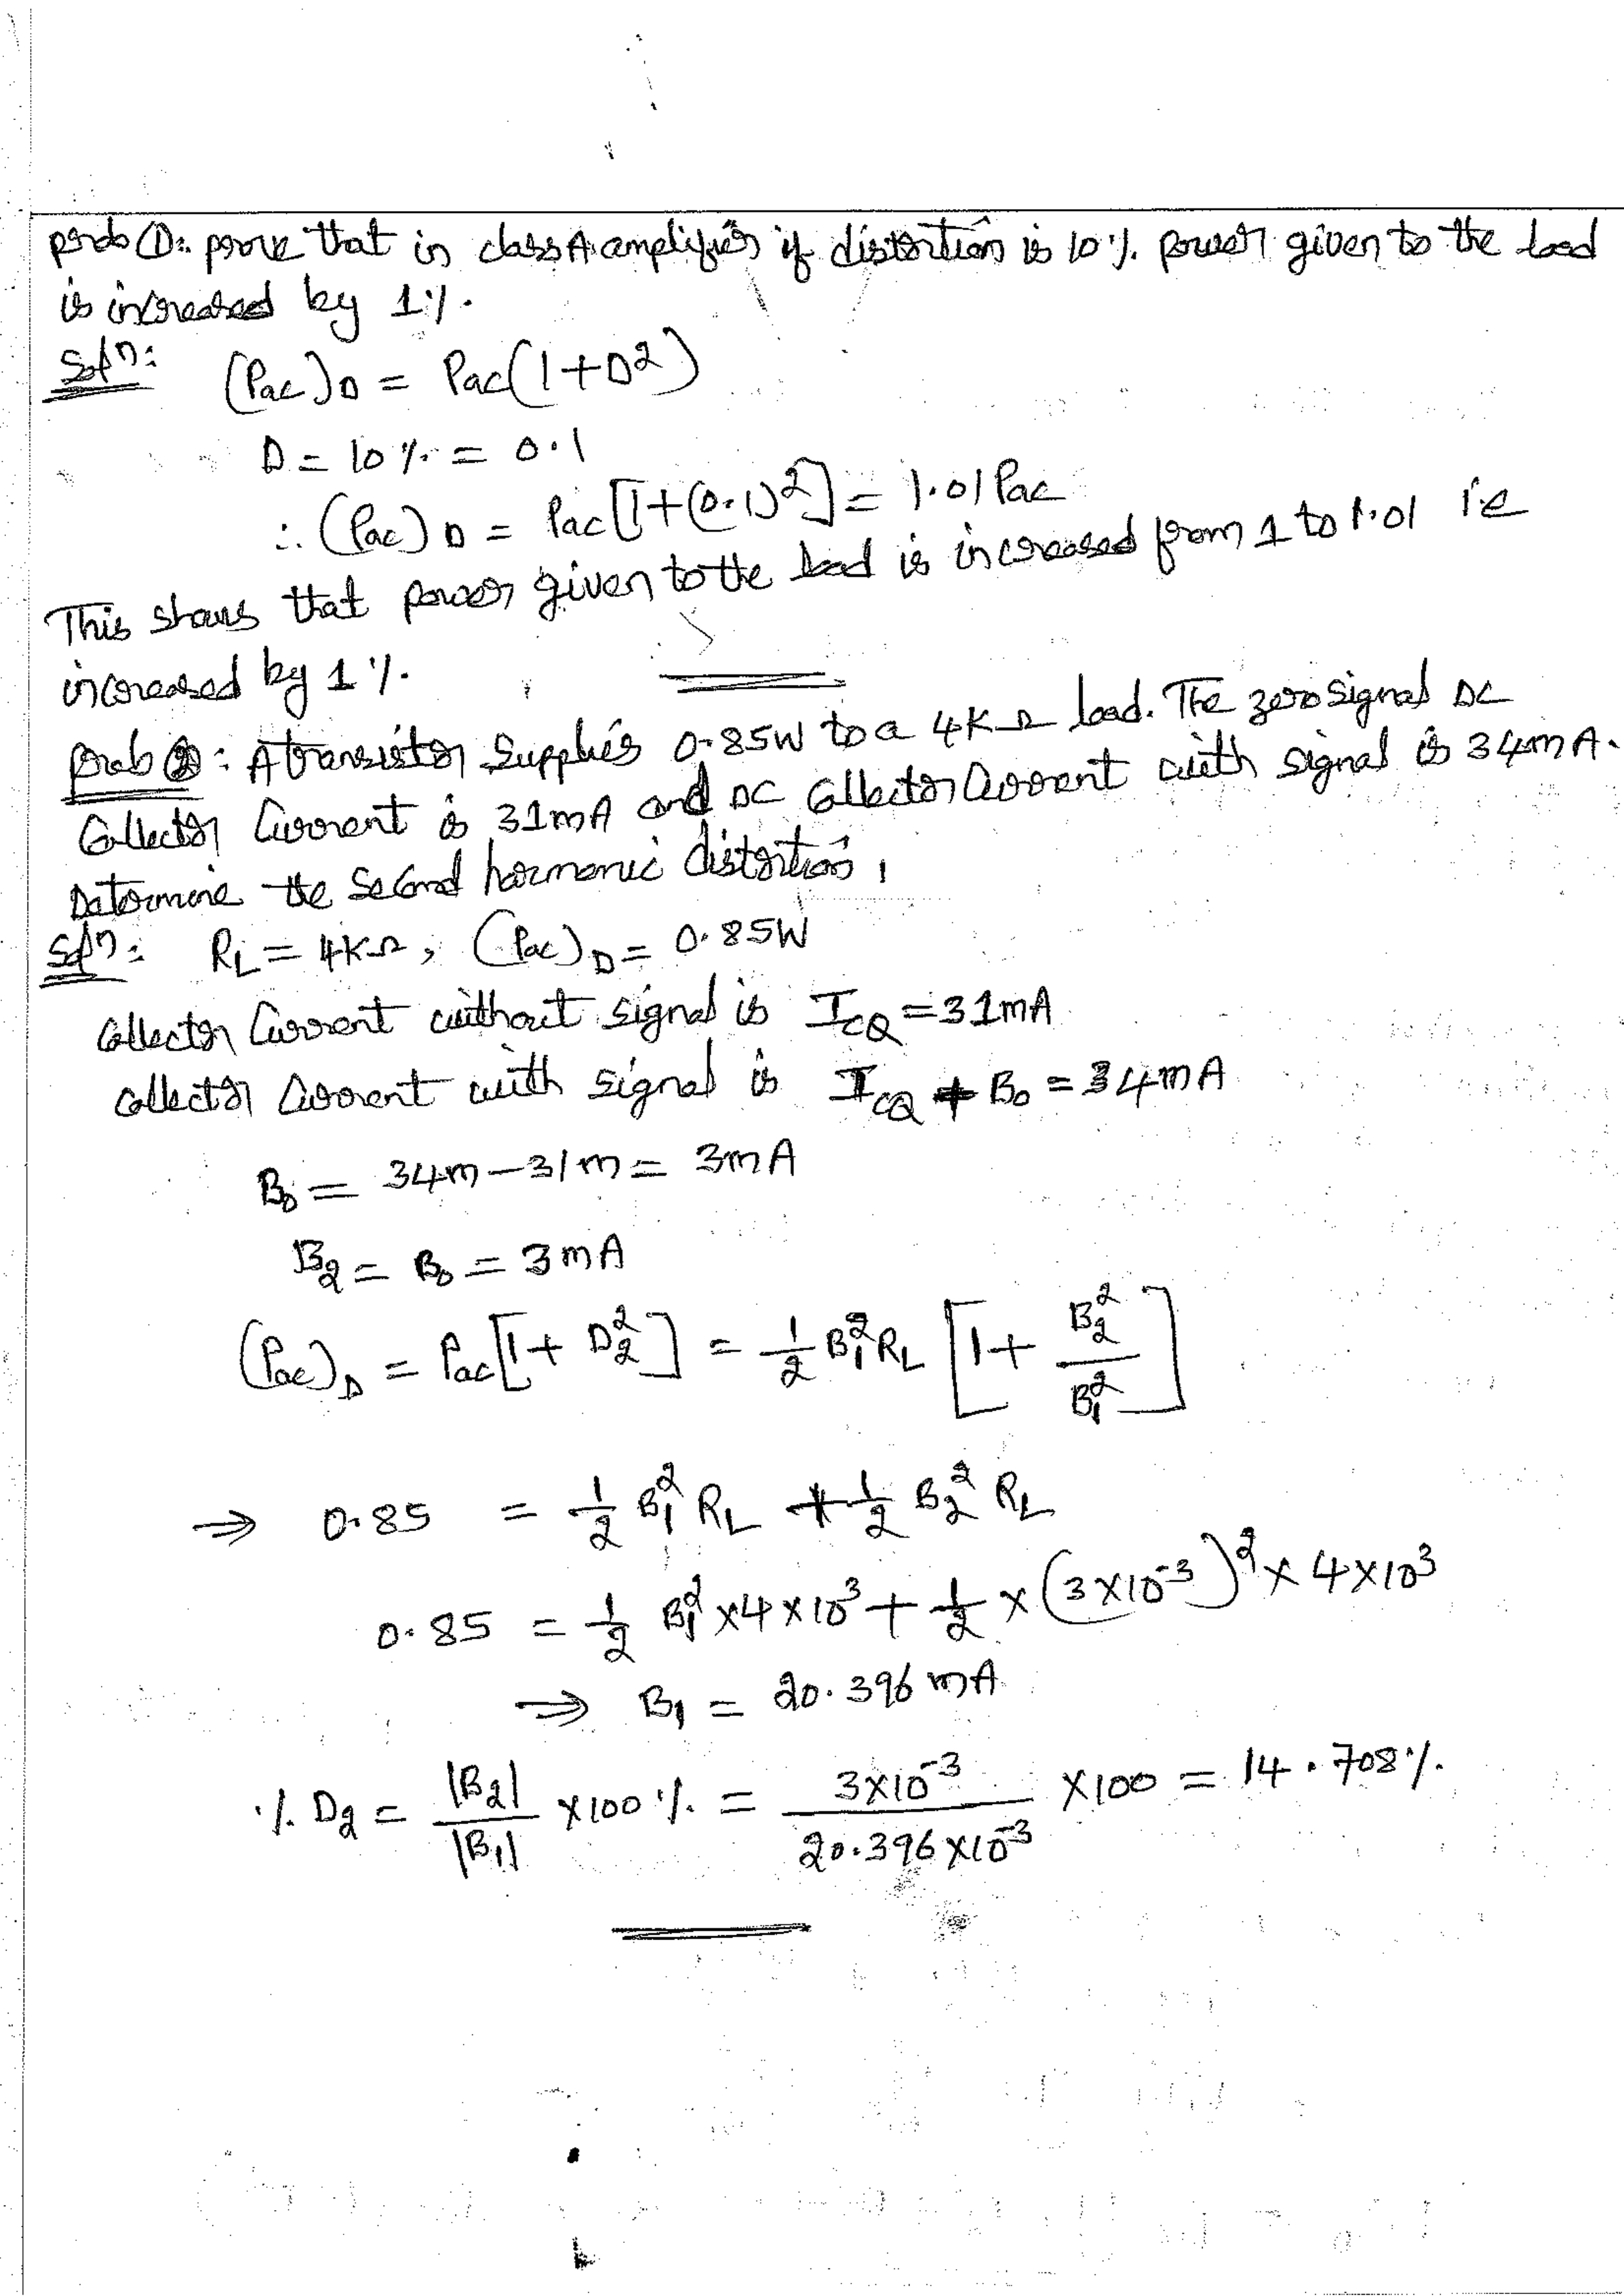 prob ①: prove that in class A amplifier if distortion is 10%. power given to the load
is increased by 1%.
Sol^n: (Pac)_D = Pac(1+D^2)
D = 10% = 0.1
∴ (Pac)_D = Pac[1+(0.1)^2] = 1.01 Pac
This shows that power given to the load is increased from 1 to 1.01 i.e
increased by 1%.
prob ②: A transistor supplies 0.85W to a 4KΩ load. The zero signal DC
Collector Current is 31mA and DC Collector Current with signal is 34mA.
Determine the Second harmonic distortion.
Sol^n: R_L = 4KΩ, (Pac)_D = 0.85W
Collector Current without signal is I_CQ = 31mA
Collector Current with signal is I_CQ + B_0 = 34mA
B_0 = 34m - 31m = 3mA
B_2 = B_0 = 3mA
(Pac)_D = Pac[1 + D_2^2] = 1/2 B_1^2 R_L [1 + B_2^2/B_1^2]
⇒ 0.85 = 1/2 B_1^2 R_L + 1/2 B_2^2 R_L
0.85 = 1/2 B_1^2 × 4×10^3 + 1/2 × (3×10^-3)^2 × 4×10^3
⇒ B_1 = 20.396 mA
% D_2 = |B_2|/|B_1| ×100% = 3×10^-3/20.396×10^-3 ×100 = 14.708%.